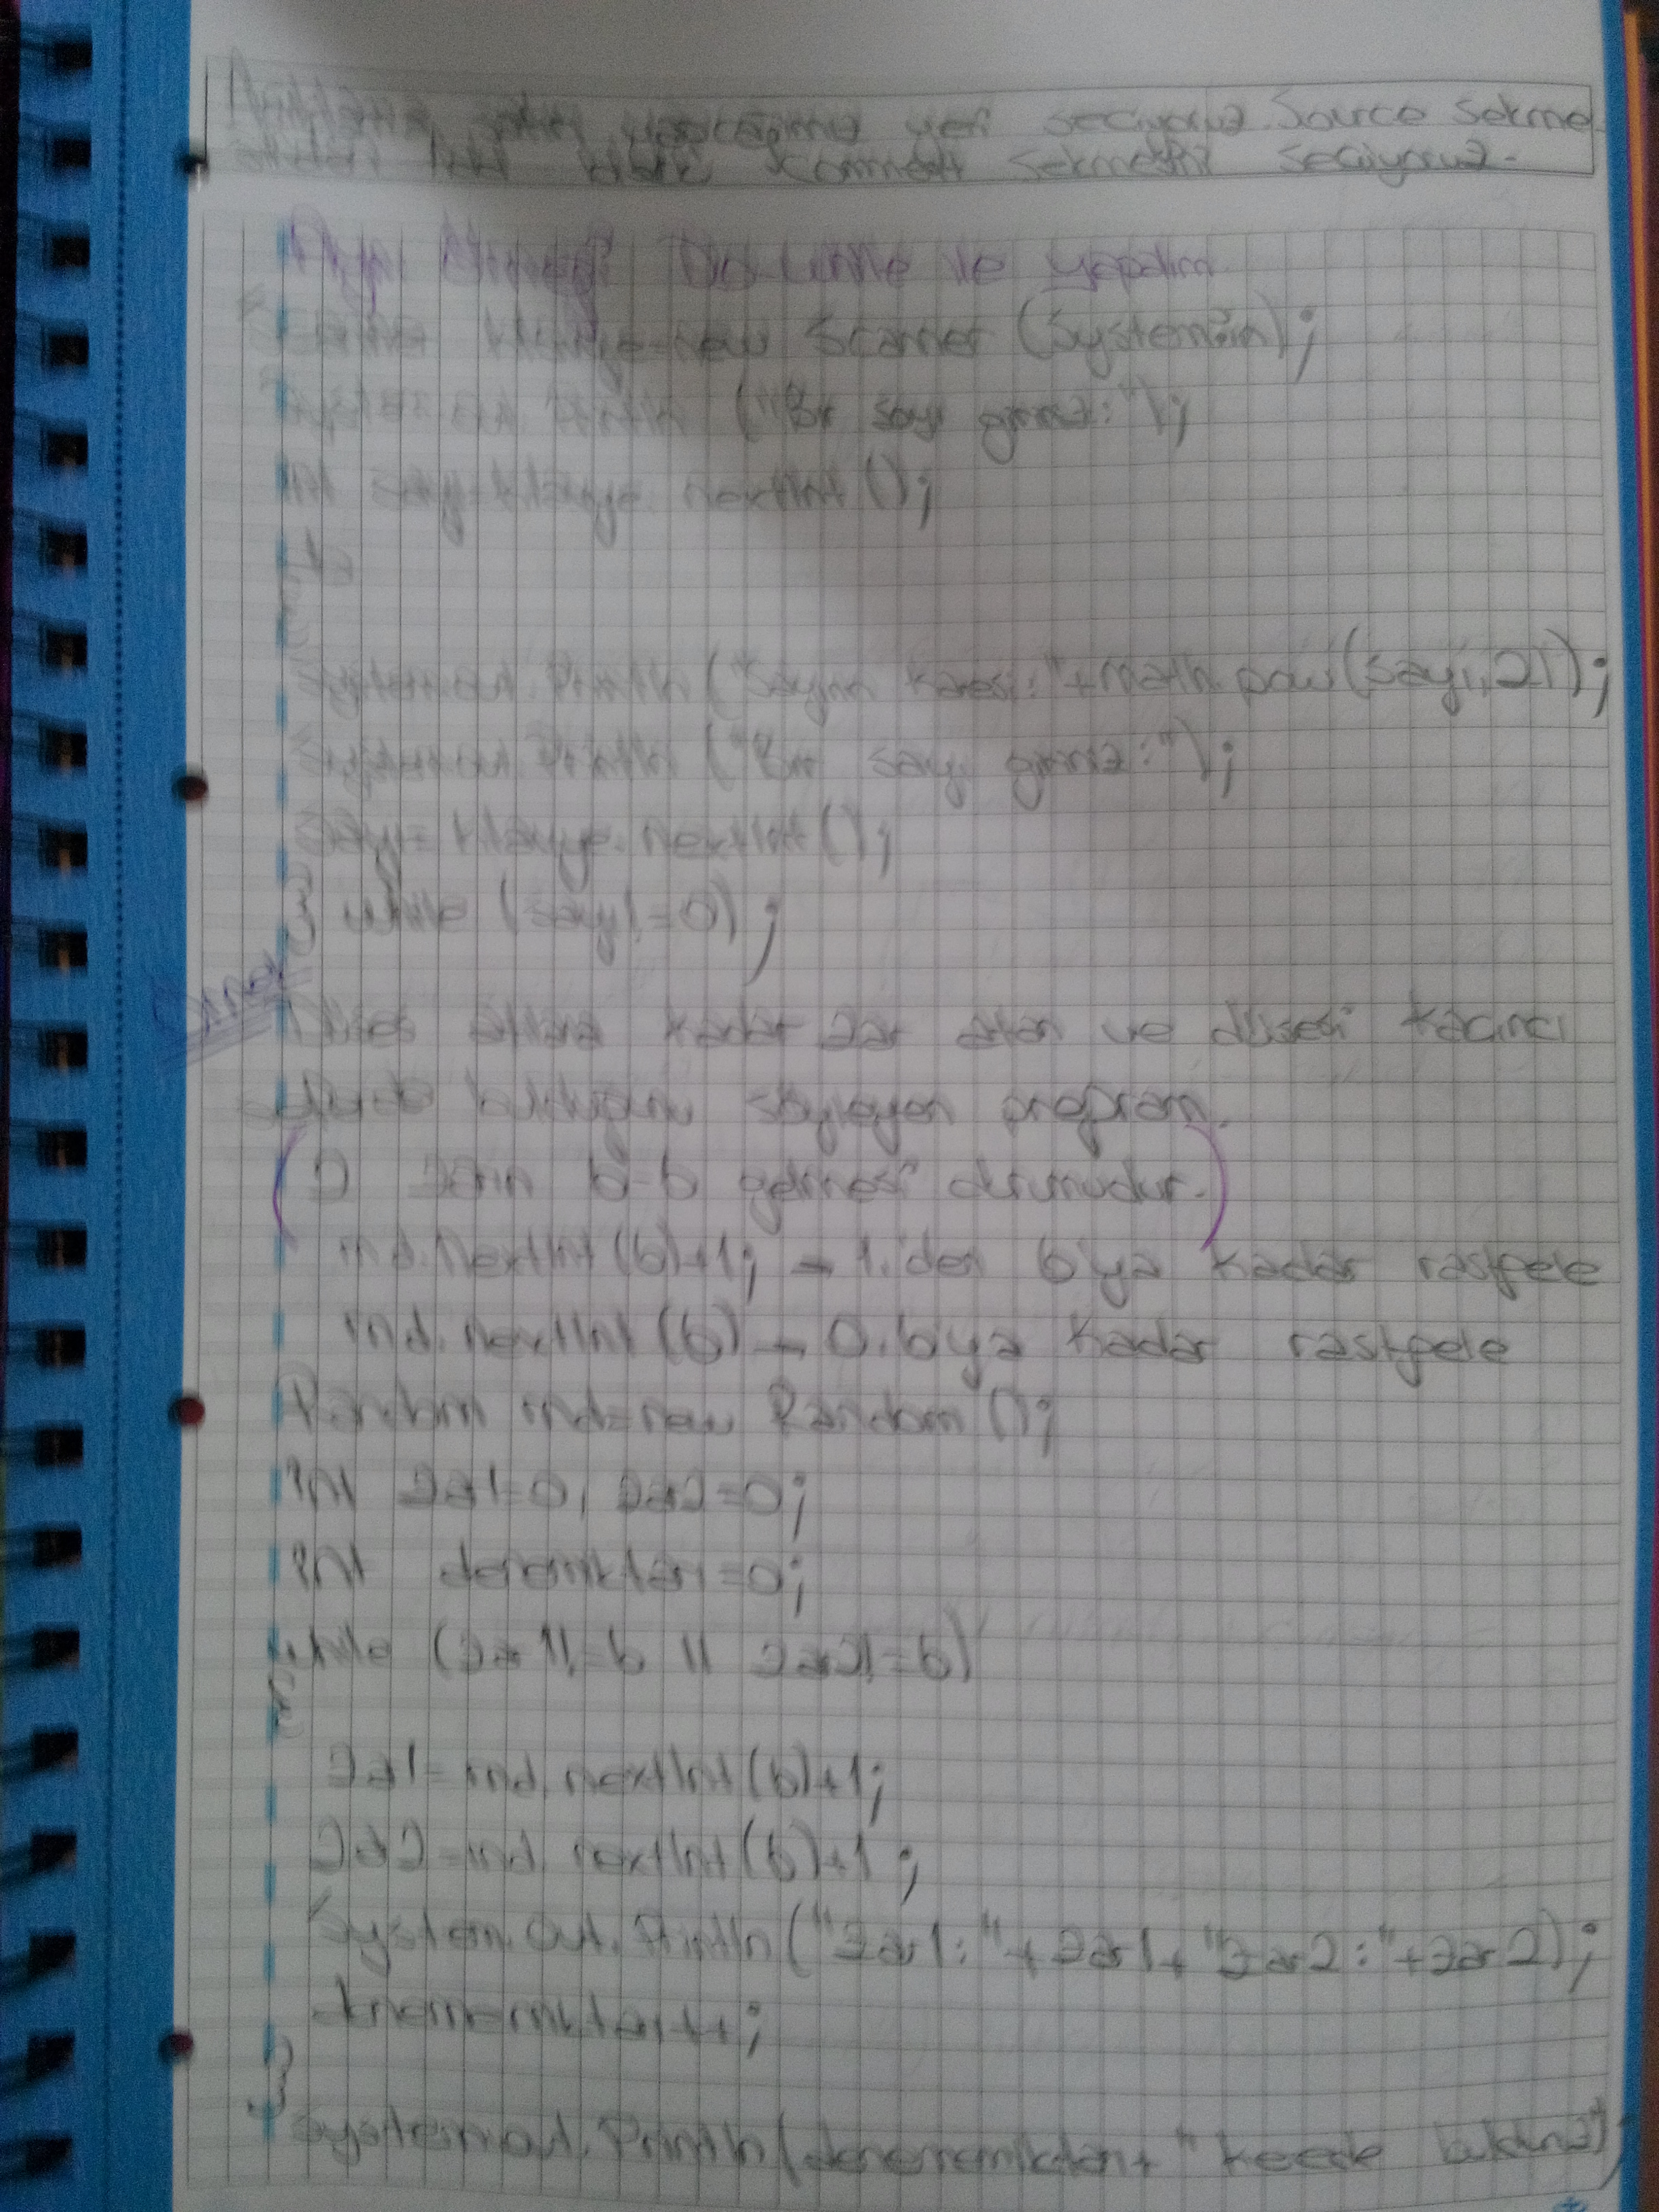 yapacağımız yeri seciyoruz. Source sekme
Comment sekmesini seciyoruz.
Aynı örneği Do While ile yapalım
klavye=new Scanner (System.in);
("Bir sayı giriniz:");
int sayı=klavye.nextInt ();
do
{
System.out.Println ("Sayının karesi:"+Math.pow(sayı,2));
System.out.Println ("Bir sayı giriniz:");
sayı=klavye.nextInt();
} while (sayı!=0);
Örnek
kadar zar atan ve düşesi kacıncı
bulduğunu söyleyen program.
(2 zarın 6-6 gelmesi durumudur.)
rnd.NextInt(6)+1; → 1.'den 6'ya kadar rastgele
rnd.nextInt(6) → 0.6ya kadar rastgele
Random rnd=new Random ();
int zar1=0, zar2=0;
int =0;
while (zar1!=6 || zar2!=6)
{
zar1=rnd.nextInt(6)+1;
zar2=rnd.nextInt(6)+1;
System.Out.Println ("Zar1:"+zar1+"Zar2:"+zar2);
}
System.out.Println ( " keede buldunuz")